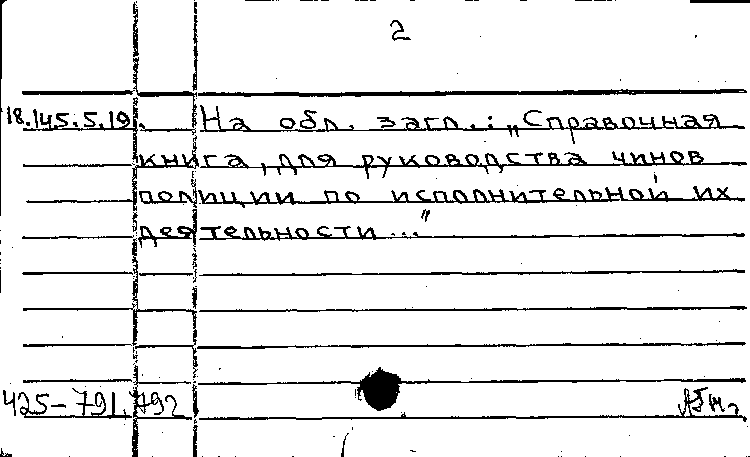 2
18.145.5.19. На обл. загл.: „Справочная
книга, для руководства чинов
полиции по исполнительной их
деятельности..."
425-791,792